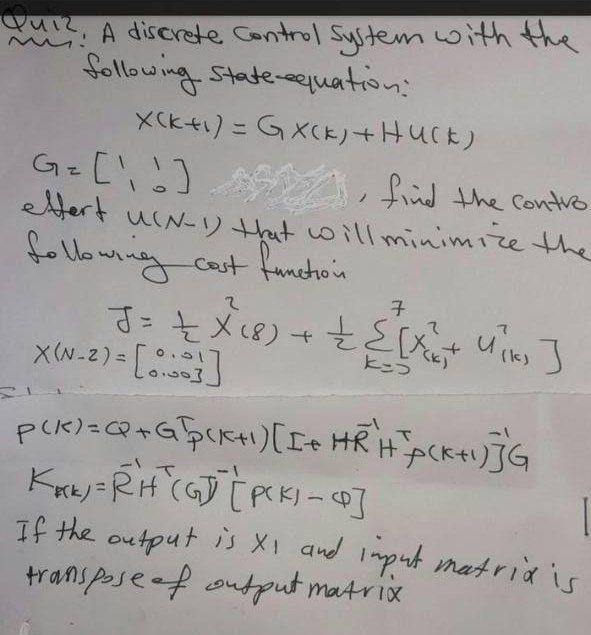 Quiz: A discrete control system with the
following state-equation:
X(k+1) = G X(k) + H u(k)
G = [ 1 1
1 0 ] , find the contro
effert u(N-1) that will minimize the
following cost function
J = 1/2 X²(8) + 1/2 Σ [X²(k) + u²(k)]
7
k=0
X(N-2) = [ 0.01
0.003 ]
P(k) = Q + Gᵀ P(k+1) [I + H R⁻¹ Hᵀ P(k+1)]⁻¹ G
K(k) = R⁻¹ Hᵀ (Gᵀ)⁻¹ [P(k) - Q]
If the output is X1 and input matrix is
transpose of output matrix